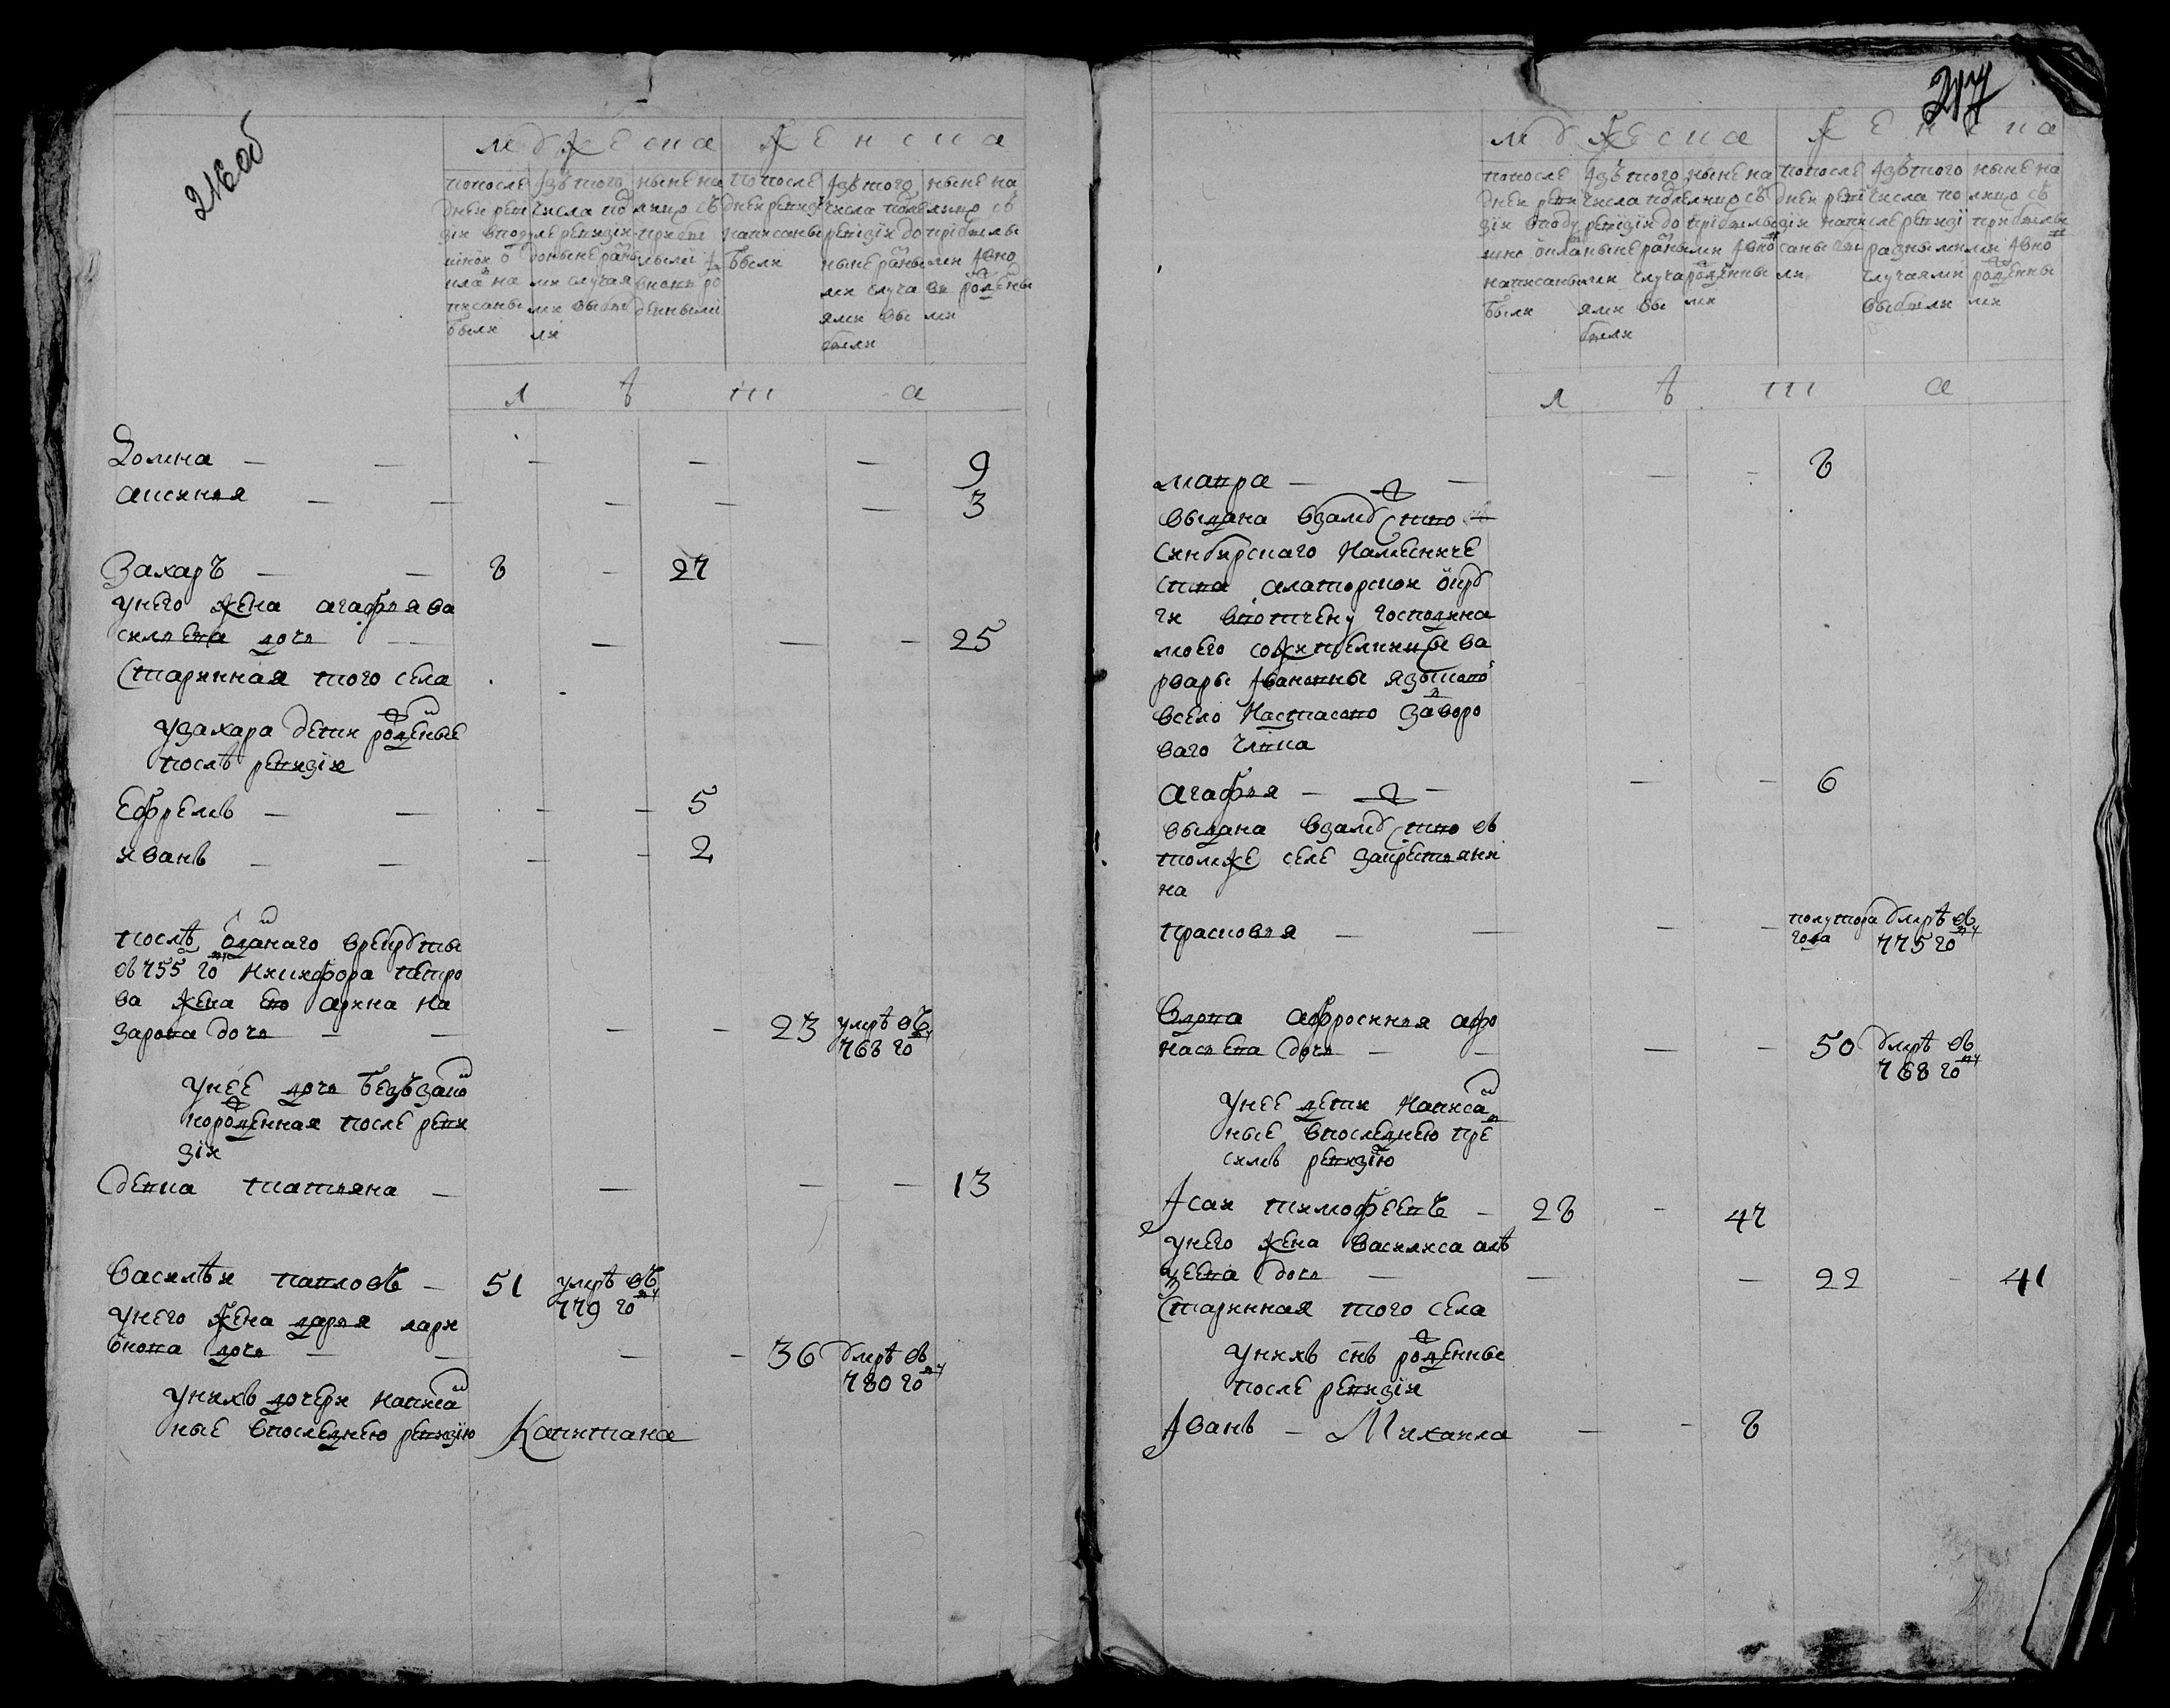 216об
мужеска женска
попосле днеи реви зіи вподу шнои о клад на писаны были
Iзъ того числа по сле ревизіи доныне разны ми случая ми выбы ли
ныне на лицо съ прибы лыми и вновь ро жденными
По после днеи ревизіи написаны были
Iзъ того числа после ревизіи до ныне разны ми случа ями вы были
ныне на лицо съ прибылы ми Iвно вь рожденны ми
л ѣ т а
Домна — — — — — 9
аксинья — — — — — 3
Захаръ — — 8 — 27
унего жена агафья ва
сильева дочь — — — — 25
Старинная того села
узахара дети рожденые
послѣ ревизіи
Ефремъ — — — — 5
иванъ — — — — 2
послѣ отданаго врекруты
въ 755 году Никифора петро
ва жена ево арина на
зарова дочь — — — — 23 умрѣ въ
768 году
унее дочь безъзако
норожденная после реви
зіи
девка татьяна — — — — 13
Василѣи павловъ — 51 умрѣ въ
779 году
унего жена дарья лари
онова дочь — — — — 36 умрѣ въ
780 году
унихъ дочери написан
ные впоследнею ревизию Капитана
217
мужеска женска
попосле днеи реви зіи вподу шно окла написаны были
Iзъ того числа после ревизіи до ныне разны ми случа ями вы были
ныне на лицо съ прибылы ми Iвновь рожденны ми
попосле днеи реви зіи напи саны бы ли
Iзъ того числа по сле ревизіи разными случаями выбыли
ныне на лицо съ прибылы ми Iвно рожденны ми
л ѣ т а
мавра — — — — 8
выдана взамуство въ
Синбирскаго Намесниче
ства алаторскои окру
ги вотчену господина
моего сожителницы ва
рвары Iвановны языково
всело Настасово заворо
ваго члвка
агафья — — — — 6
выдана взамуство въ
томже селе закрестьяни
на
прасковья — — — — полутора умрѣ въ
года 775 году
Вдова афросинья афо
насьева дочь — — — — 50 умрѣ въ
768 году
унее дети Написан
ные впоследнею пре
симъ ревизію
Iсаи тимофеевъ — 28 — 47
унего жена василиса алѣ
ѯеева дочь — — — 22 — 41
Старинная того села
унихъ снъ рожденные
после ревизіи
Iванъ — Михаила — — 8